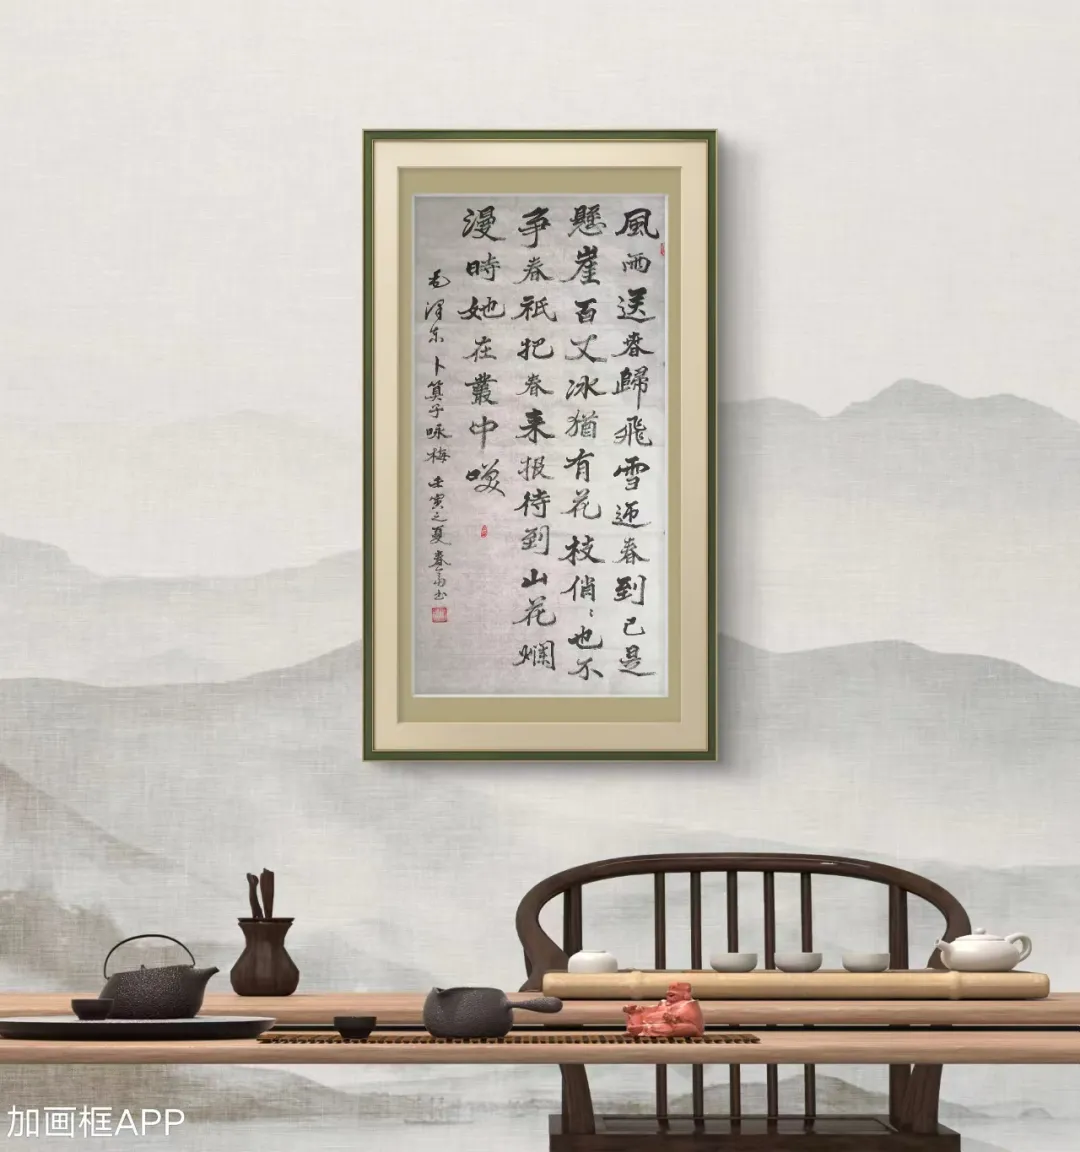 風雨送春歸飛雪迎春到已是
懸崖百丈冰猶有花枝俏〻也不
争春祇把春来报待到山花爛
漫時她在叢中咲
毛泽东卜算子咏梅壬寅之夏春 书
加画框APP